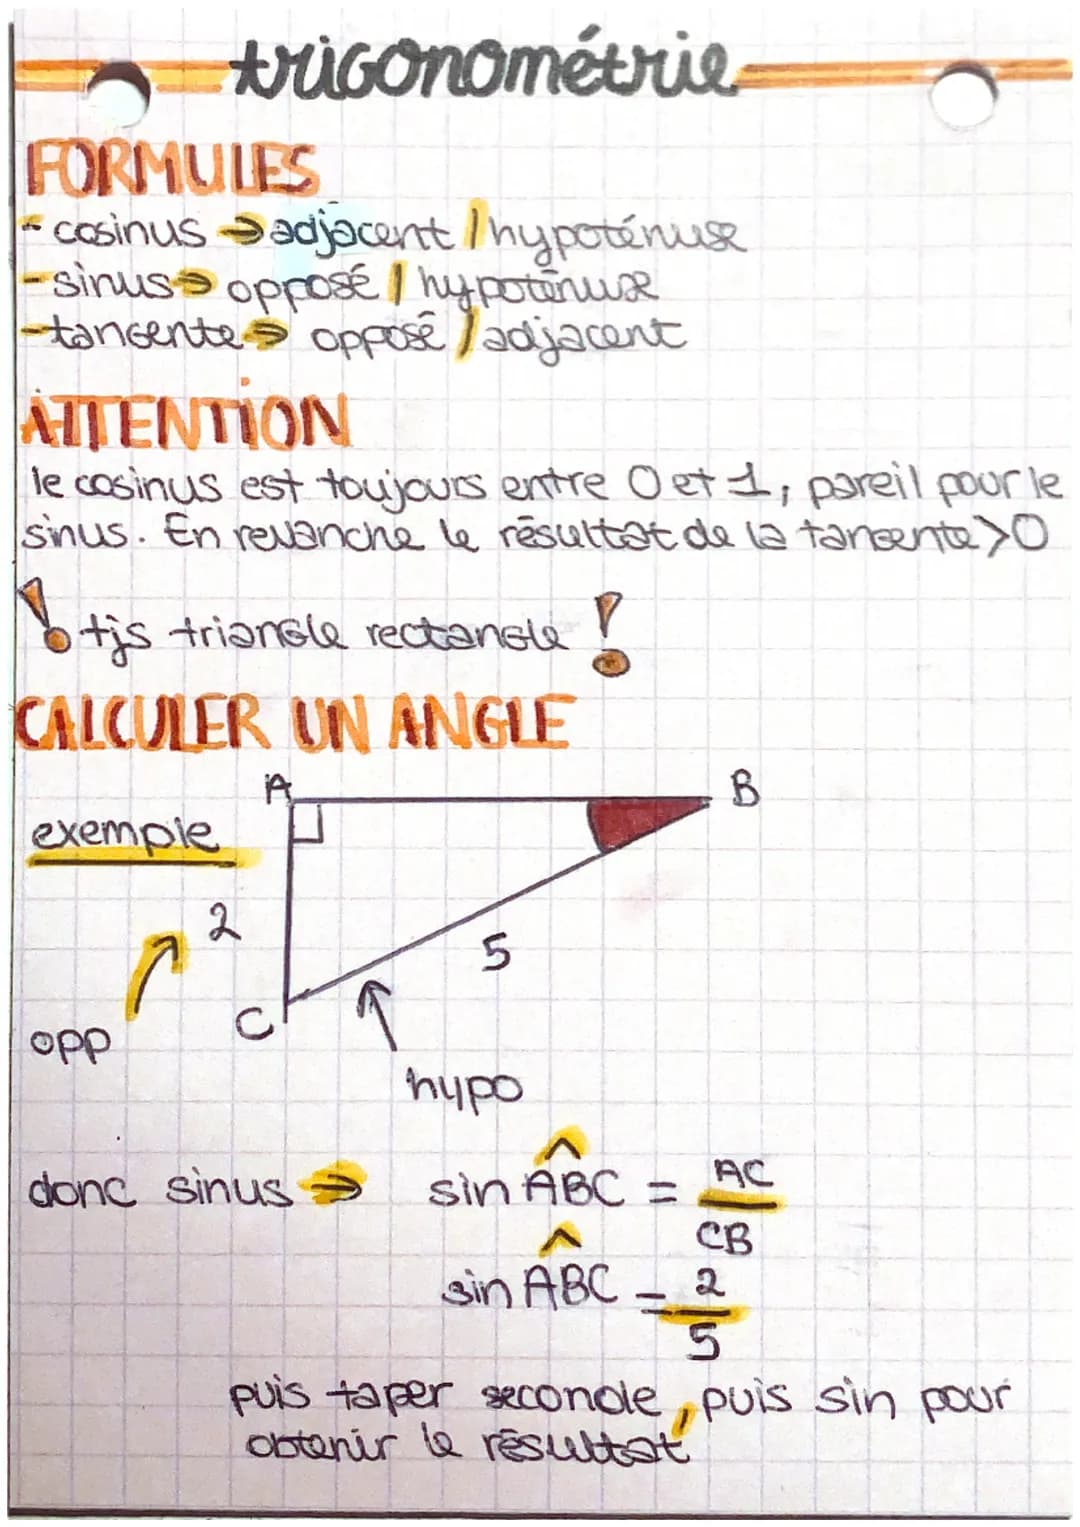 trigonométrie
FORMULES
- cosinus → adjacent / hypoténuse
- sinus → opposé / hypoténuse
- tangente → opposé / adjacent
ATTENTION
le cosinus est toujours entre 0 et 1, pareil pour le
sinus. En revanche le résultat de la tangente > 0
! tjs triangle rectangle !
CALCULER UN ANGLE
A
B
exemple
2
5
C
opp
hypo
donc sinus → sin ABC = AC
CB
sin ABC = 2
5
puis taper seconde, puis sin pour
obtenir le résultat